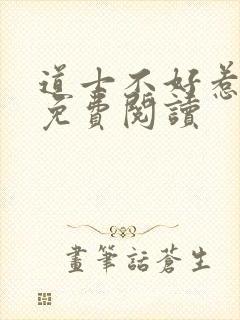 道士不好惹
免費閱讀
畫筆話蒼生